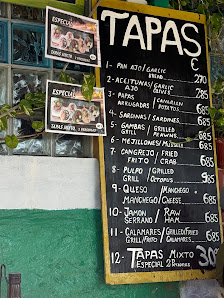 ESPECIAL
TAPAS MIXTO
ESPECIAL
TAPAS MIXTO 2 PERSONAS
TAPAS
€
1- PAN AJO/GARLIC BREAD 2'70
2- ACEITUNAS/GARLIC
AJO OLIVES 2'85
3- PAPAS CANARIAN
ARRUGADAS POTATOES 6'85
4- SARDINAS/SARDINES. 6'85
5- GAMBAS GRILLED
GRILL PRAWNS 6'85
6- MEJILLONES/MUSSELS 6'85
7- CANGREJO/FRIED
FRITO CRAB. 6'85
8- PULPO GRILLED
GRILL OCTOPUS 9'85
9- QUESO MANCHEGO
MANCHEGO CHEESE 6'85
10- JAMON RAW
SERRANO HAM. 6'85
11- CALAMARES/GRILLED/FRIED
GRILL/FRITO CALAMARES 6'85
12- TAPAS MIXTO 30
ESPECIAL 2 PERSONAS